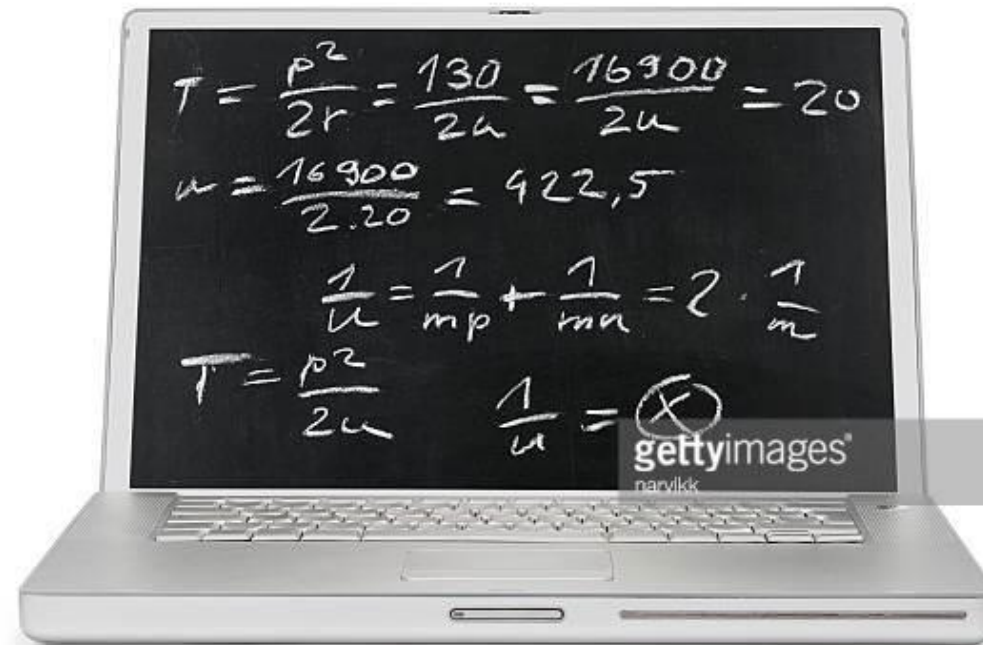 T = p²/2r = 130/2u = 16900/2u = 20
u = 16900/2.20 = 422,5
1/u = 1/mp + 1/mn = 2 · 1/m
T = p²/2u
1/u = (x)
gettyimages®
narvikk